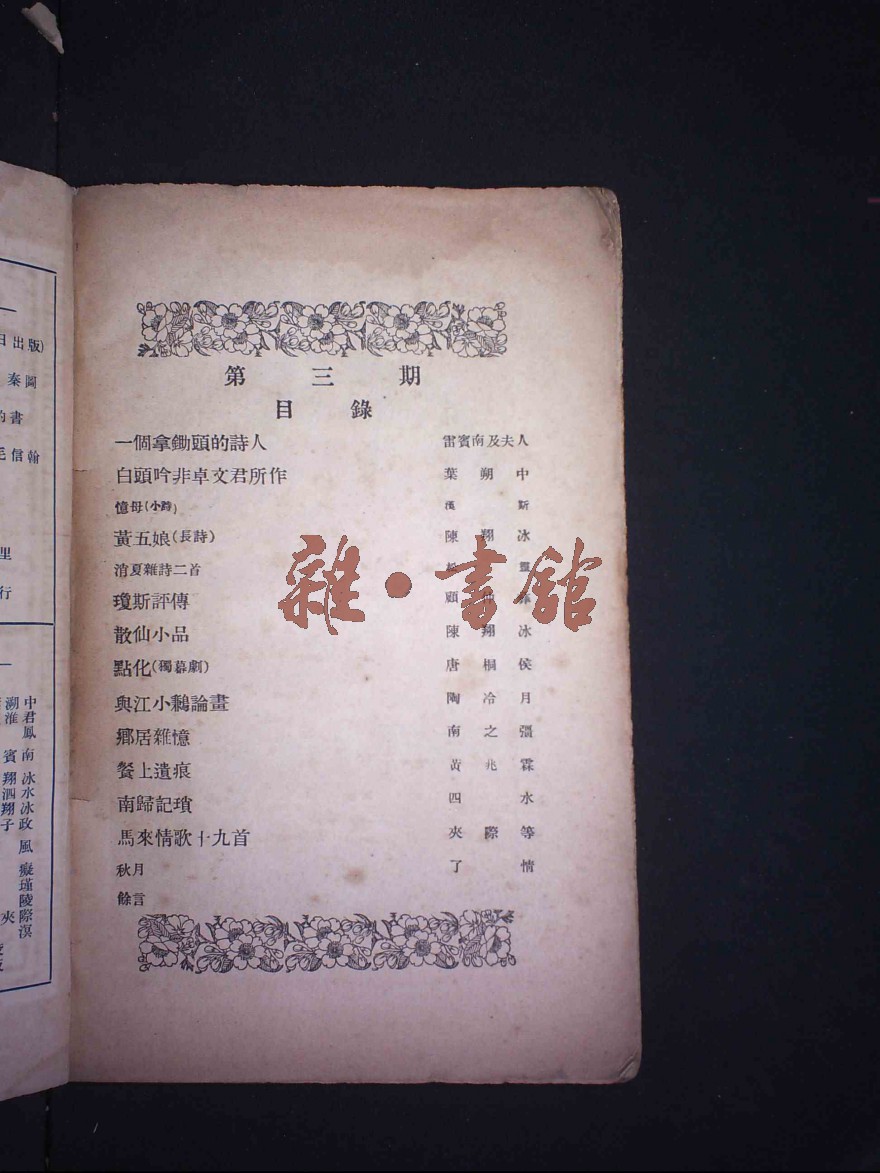 第三期
目錄
一個拿鋤頭的詩人 雷賓南及夫人
白頭吟非卓文君所作 葉朔中
憶母(小詩) 漢斯
黃五娘(長詩) 陳翔冰
消夏雜詩二首
瓊斯評傳 顧
散仙小品 陳翔冰
點化(獨幕劇) 唐桐侯
與江小鶼論畫 陶冷月
鄉居雜憶 南之强
餐上遺痕 黃兆霖
南歸記瑣 四水
馬來情歌十九首 夾際等
秋月 了情
餘言
雜·書館
日出版)
秦圖
的書
毛信翰
里
行
中君鳳
溯淮
南
賓
冰水冰政
翔泗翔子
風
癡瑾陵際溟
夾